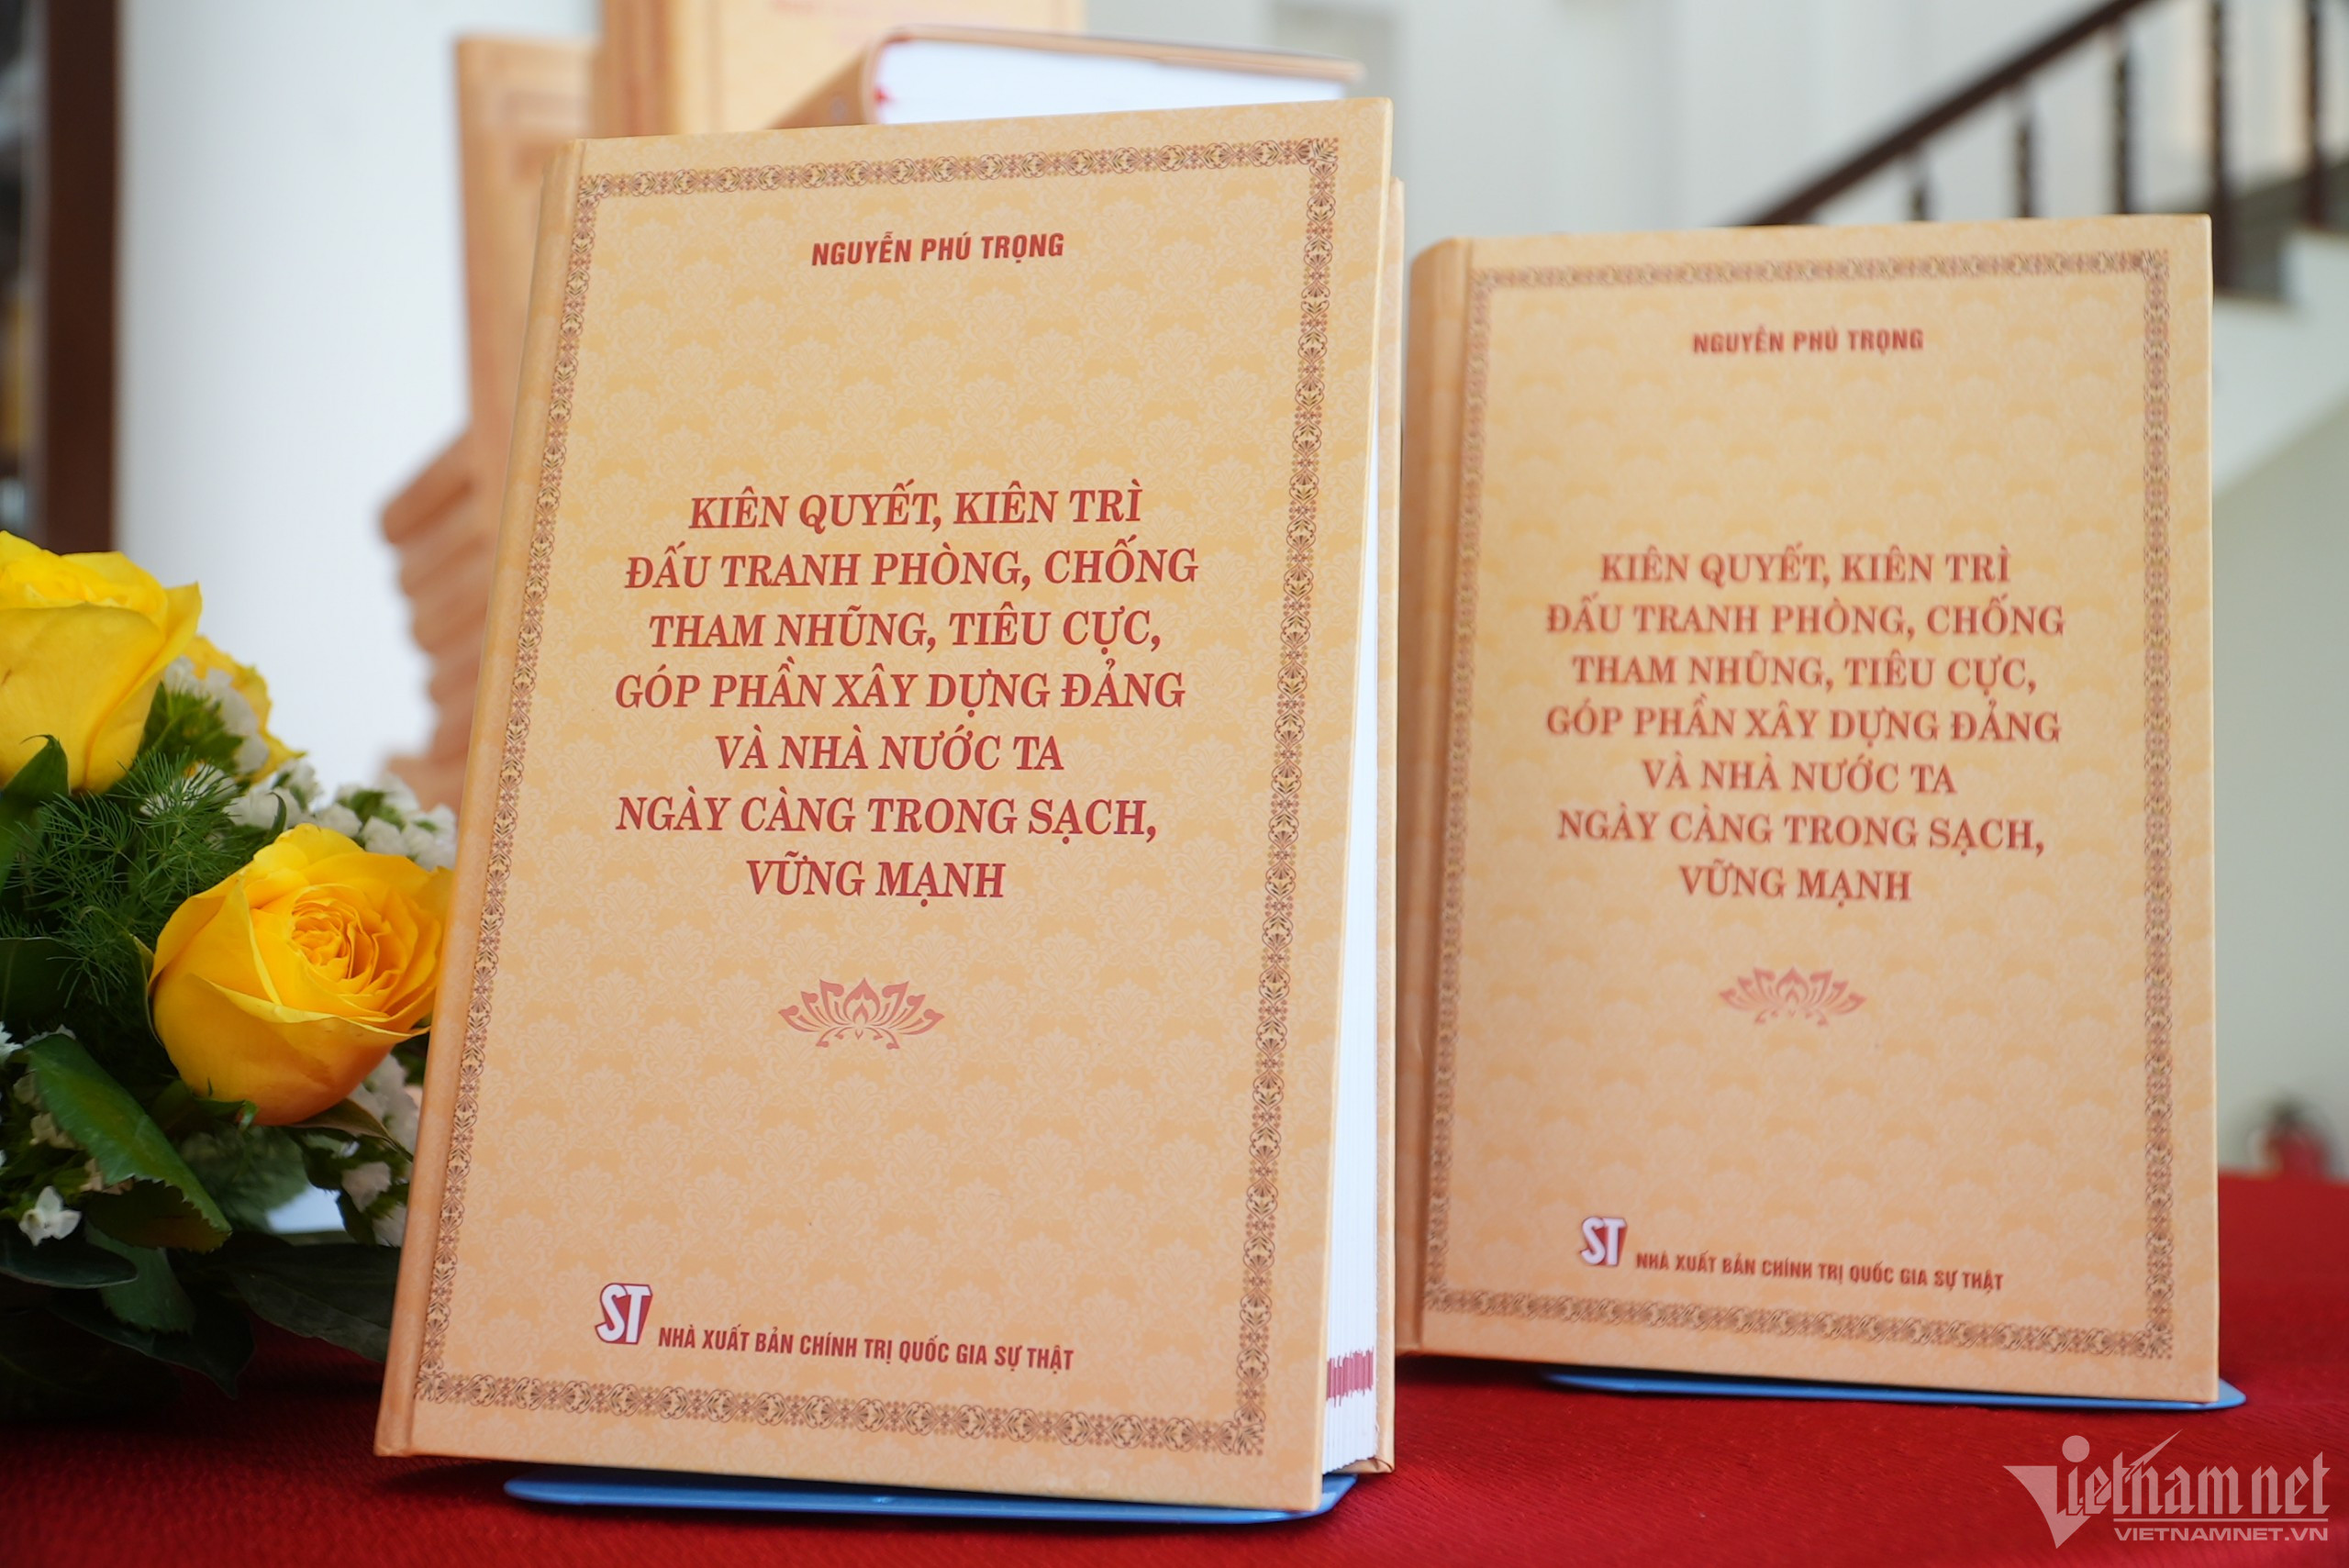 NGUYỄN PHÚ TRỌNG
KIÊN QUYẾT, KIÊN TRÌ
ĐẤU TRANH PHÒNG, CHỐNG
THAM NHŨNG, TIÊU CỰC,
GÓP PHẦN XÂY DỰNG ĐẢNG
VÀ NHÀ NƯỚC TA
NGÀY CÀNG TRONG SẠCH,
VỮNG MẠNH
ST NHÀ XUẤT BẢN CHÍNH TRỊ QUỐC GIA SỰ THẬT
NGUYỄN PHÚ TRỌNG
KIÊN QUYẾT, KIÊN TRÌ
ĐẤU TRANH PHÒNG, CHỐNG
THAM NHŨNG, TIÊU CỰC,
GÓP PHẦN XÂY DỰNG ĐẢNG
VÀ NHÀ NƯỚC TA
NGÀY CÀNG TRONG SẠCH,
VỮNG MẠNH
ST NHÀ XUẤT BẢN CHÍNH TRỊ QUỐC GIA SỰ THẬT
Vietnamnet
VIETNAMNET.VN